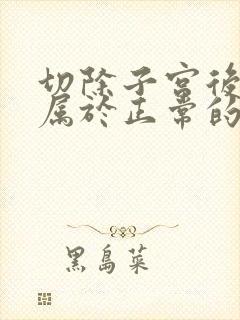 切除子宮後
屬於正常的
黑島菜